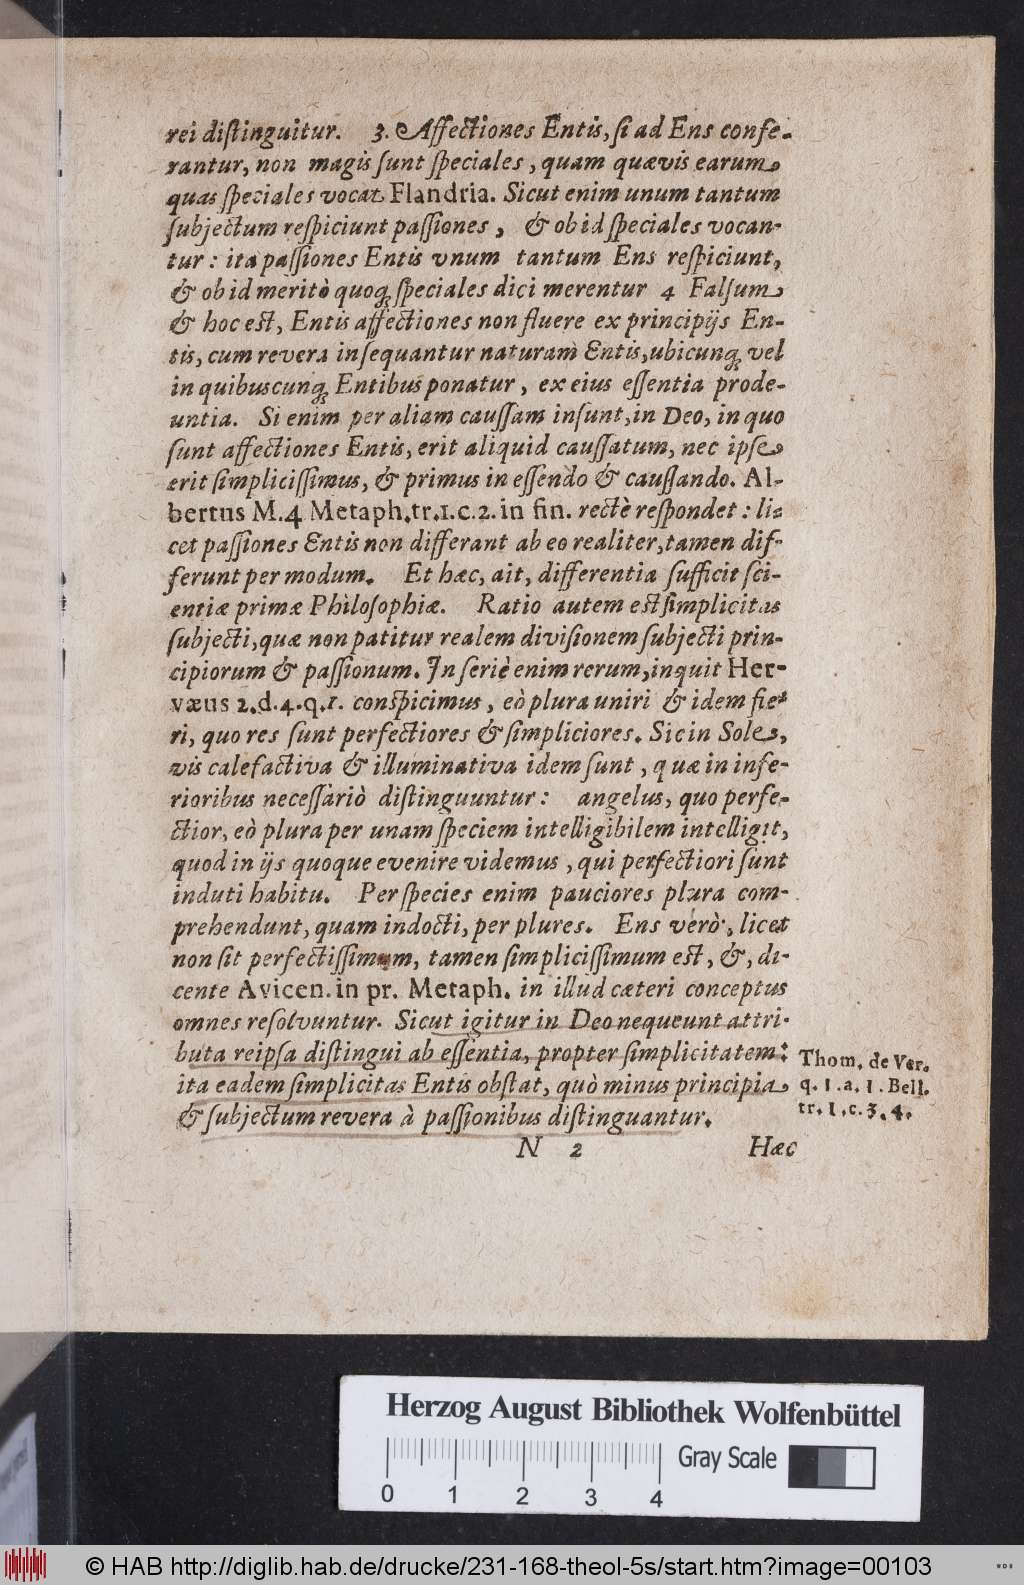 rei diſtinguitur. 3. Affectiones Entis, ſi ad Ens confe-
rantur, non magis ſunt ſpeciales, quam quævis earum
quas ſpeciales vocat Flandria. Sicut enim unum tantum
ſubjectum reſpiciunt paſſiones, & ob id ſpeciales vocan-
tur: ita paſſiones Entis vnum tantum Ens reſpiciunt,
& ob id meritò quoq; ſpeciales dici merentur 4 Falſum
& hoc est, Entis affectiones non fluere ex principijs En-
tis, cum revera inſequantur naturam Entis, ubicunq; vel
in quibuscunq; Entibus ponatur, ex eius eſſentia prode-
untia. Si enim per aliam cauſſam inſunt, in Deo, in quo
ſunt affectiones Entis, erit aliquid cauſſatum, nec ipſe
erit ſimpliciſſimus, & primus in eſſendo & cauſſando. Al-
bertus M. 4 Metaph. tr. 1. c. 2. in fin. rectè reſpondet: li-
cet paſſiones Entis non differant ab eo realiter, tamen dif-
ferunt per modum. Et hæc, ait, differentia ſufficit ſci-
entiæ primæ Philoſophiæ. Ratio autem est ſimplicitas
ſubjecti, quæ non patitur realem diviſionem ſubjecti prin-
cipiorum & paſſionum. In ſeriè enim rerum, inquit Her-
væus 2. d. 4. q. 1. conſpicimus, eò plura uniri & idem fie-
ri, quo res ſunt perfectiores & ſimpliciores. Sic in Sole,
vis calefactiva & illuminativa idem ſunt, quæ in infe-
rioribus neceſſariò diſtinguuntur: angelus, quo perfe-
ctior, eò plura per unam ſpeciem intelligibilem intelligit,
quod in ijs quoque evenire videmus, qui perfectiori ſunt
induti habitu. Per ſpecies enim pauciores plura com-
prehendunt, quam indocti, per plures. Ens verò, licet
non ſit perfectiſſimum, tamen ſimpliciſſimum est, &, di-
cente Avicen. in pr. Metaph. in illud cæteri conceptus
omnes reſolvuntur. Sicut igitur in Deo nequeunt attri-
buta reipſa diſtingui ab eſſentia, propter ſimplicitatem:
ita eadem ſimplicitas Entis obſtat, quò minus principia
& ſubjectum revera à paſſionibus diſtinguantur.
Thom. de Ver.
q. 1. a. 1. Bell.
tr. 1. c. 3. 4.
N 2 Hæc
Herzog August Bibliothek Wolfenbüttel
Gray Scale
0 1 2 3 4
© HAB http://diglib.hab.de/drucke/231-168-theol-5s/start.htm?image=00103